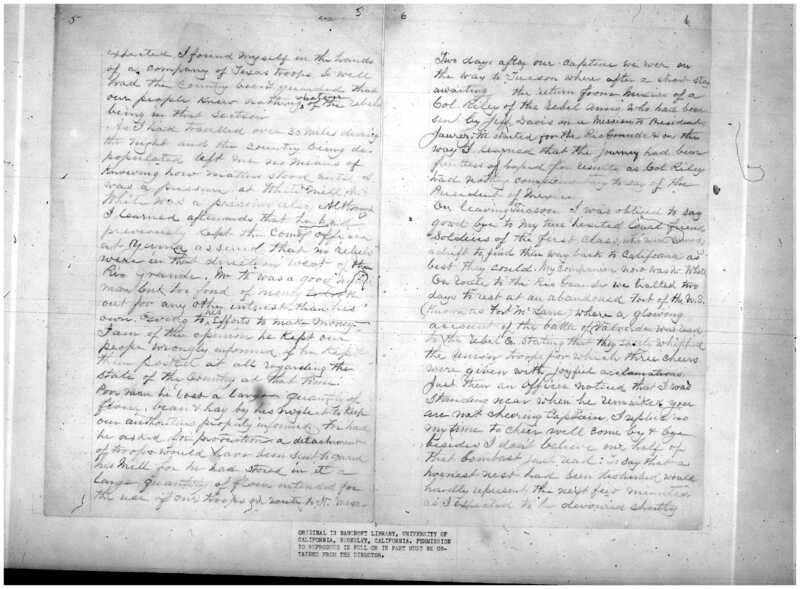 5
5
expected I found myself in the hands
of a company of Texas troops. So well
had the County been guarded that
our people knew nothing whatever of the rebels
being in that section
As I had travelled over 30 miles during
the night and the country being de-
populated left me no means of
knowing how matters stood until I
was a prisoner at Whites Mill. Mr
White was a prisoner also, Although
I learned afterwards that he had
previously kept the Comdg officer
at Yuma assured that no rebels
were in that direction west of the
Rio Grande. Mr W was a good
man but too fond of money to look
out for any other interest than his
own. Owing to his Efforts to make money
I am of the opinion he kept our
people wrongly informed if he kept
them posted at all regarding the
state of the Country at that time.
Poor man he lost a large quantity of
flour, beans & hay by his neglect to keep
our authorities properly informed, to had
he asked for protection a detachment
of troops would have been sent to guard
his Mill for he had stored in it a
large quantity of flour intended for
the use of our troops en route to N. Mex-
6
6
Two days after our capture we were on
the way to Tucson where after a short stay
awaiting the return from Mexico of a
Col. Riley of the Rebel Army who had been
sent by Jeff Davis on a Mission to President
Jaurez. We started for the Rio Grande & on the
way I learned that the journey had been
fruitless of hoped for results as Col Riley
had nothing complimentary to say of the
President of Mexico.
On leaving Tucson I was obliged to say
good bye to my true hearted loyal friends
Soldiers of the first Class, who were turned
adrift to find their way back to California as
best they could. My Companion now was Mr White
On route to the Rio Grande we halted two
days to rest at an abandoned Fort of the U.S.
(Known as Fort Mc Lane) where a glowing
account of the battle of Valverde was read
to the Rebel Co. Stating that they easily whipped
the Union troops for which three cheers
were given with joyful acclamations.
Just then an Officer noticed that I was
standing near when he remarked you
are not cheering Captain, I replied no
my time to cheer will come by & bye
besides I don't believe one half of
that bombast just read: To say that a
hornets nest had been disturbed would
hardly represent the next few minutes
as I expected to be devoured shortly
ORIGINAL IN BANCROFT LIBRARY, UNIVERSITY OF
CALIFORNIA, BERKELEY, CALIFORNIA. PERMISSION
TO REPRODUCE IN FULL OR IN PART MUST BE OB-
TAINED FROM THE DIRECTOR.